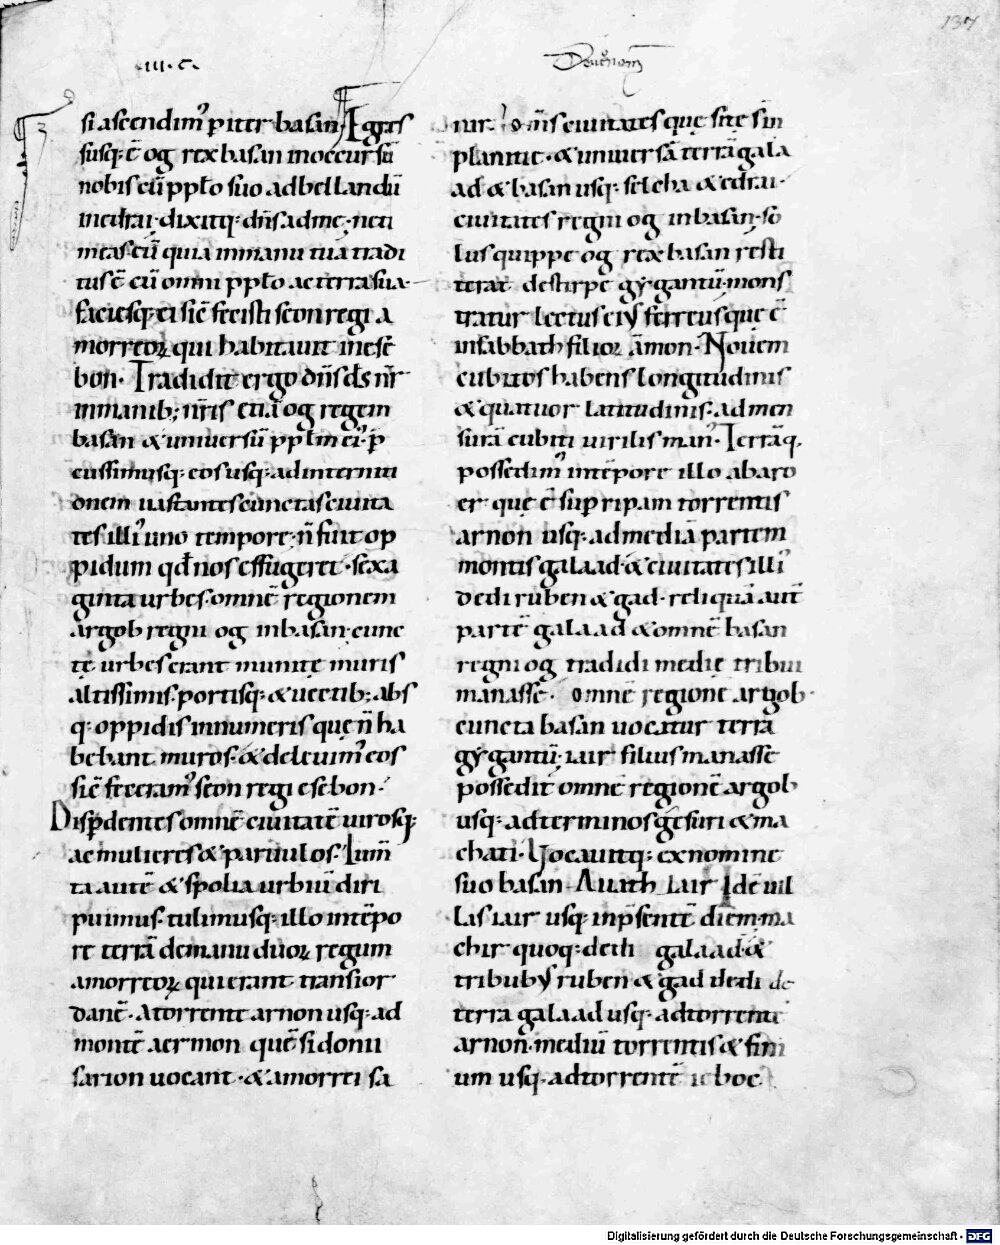 137
.III. C.
Deuteronom̄
si ascendim᷒ p iter basan. Egres
susq; ē og rex basan in occursū
nobis cū pplo suo ad bellandū
in edrai. dixitq; dn̄s ad me. ne ti
meas eū quia in manu tua tradi
tus ē cū omni pplo ac terra sua.
faciesq; ei sic̄ fecisti seon regi a
morreoꝝ qui habitauit in ese
bon. Tradidit ergo dn̄s ds̄ nr̄
in manib; nr̄is etiā og regem
basan & uniuersū pplm ei᷒. p̄
cussimusq; eos usq; ad interniti
onem uastantes cunctas ciuita
tes illi᷒ uno tempore. n̄ fuit op
pidum qd̄ nos effugeret. sexa
ginta urbes. omnē regionem
argob regni og in basan. cunc
tę urbes erant munitę muris
altissimis. portisq; & uectib; abs
q; oppidis innumeris quę n̄ ha
bebant muros. & deleuim᷒ eos
sic̄ feceram᷒ seon regi esebon.
Disp̄dentes omnē ciuitatē uirosq;
ac mulieres & paruulos. Ium̄
ta autē & spolia urbiū diri
puimus. tulimusq; illo in tēpo
re terrā de manu duoꝝ regum
amorreoꝝ qui erant trans ior
danē. A torrente arnon usq; ad
montē aermon quē sidonii
sarion uocant. & amorrei sa
nir. oms̄ ciuitates quę sitę s̄ in
planitie. & uniuersā terrā gala
ad & basan usq; selcha & edrai.
ciuitates regni og in basan. so
lus quippe og rex basan resti
terat de stirpe gygantū. mons
tratur lectus ei᷒ ferreus que ē
in sabbath filioꝝ āmon. Nouem
cubitos habens longitudinis
& quatuor latitudinis. ad men
surā cubiti uirilis man᷒. Terrāq;
possedim᷒ in tēpore illo ab aro
er que ē sup ripam torrentis
arnon usq; ad mediā partem
montis galaad. & ciuitates illi᷒
dedi ruben & gad. reliquā aut̄
partē galaad & omnē basan
regni og tradidi medię tribui
manasse. omnē regionē argob.
cuncta basan uocatur terra
gygantū. iair filius manasse
possedit omnē regionē argob
usq; ad terminos gesuri & ma
chati. Uocauitq; ex nomine
suo basan. Auoth iair. Idē uil
las iair usq; in p̄sentē diem. ma
chir quoq; dedi galaad. &
tribubus ruben & gad dedi de
terra galaad usq; ad torrente
arnon. mediū torrentis & fini
um usq; ad torrentē ieboc.
Digitalisierung gefördert durch die Deutsche Forschungsgemeinschaft - DFG